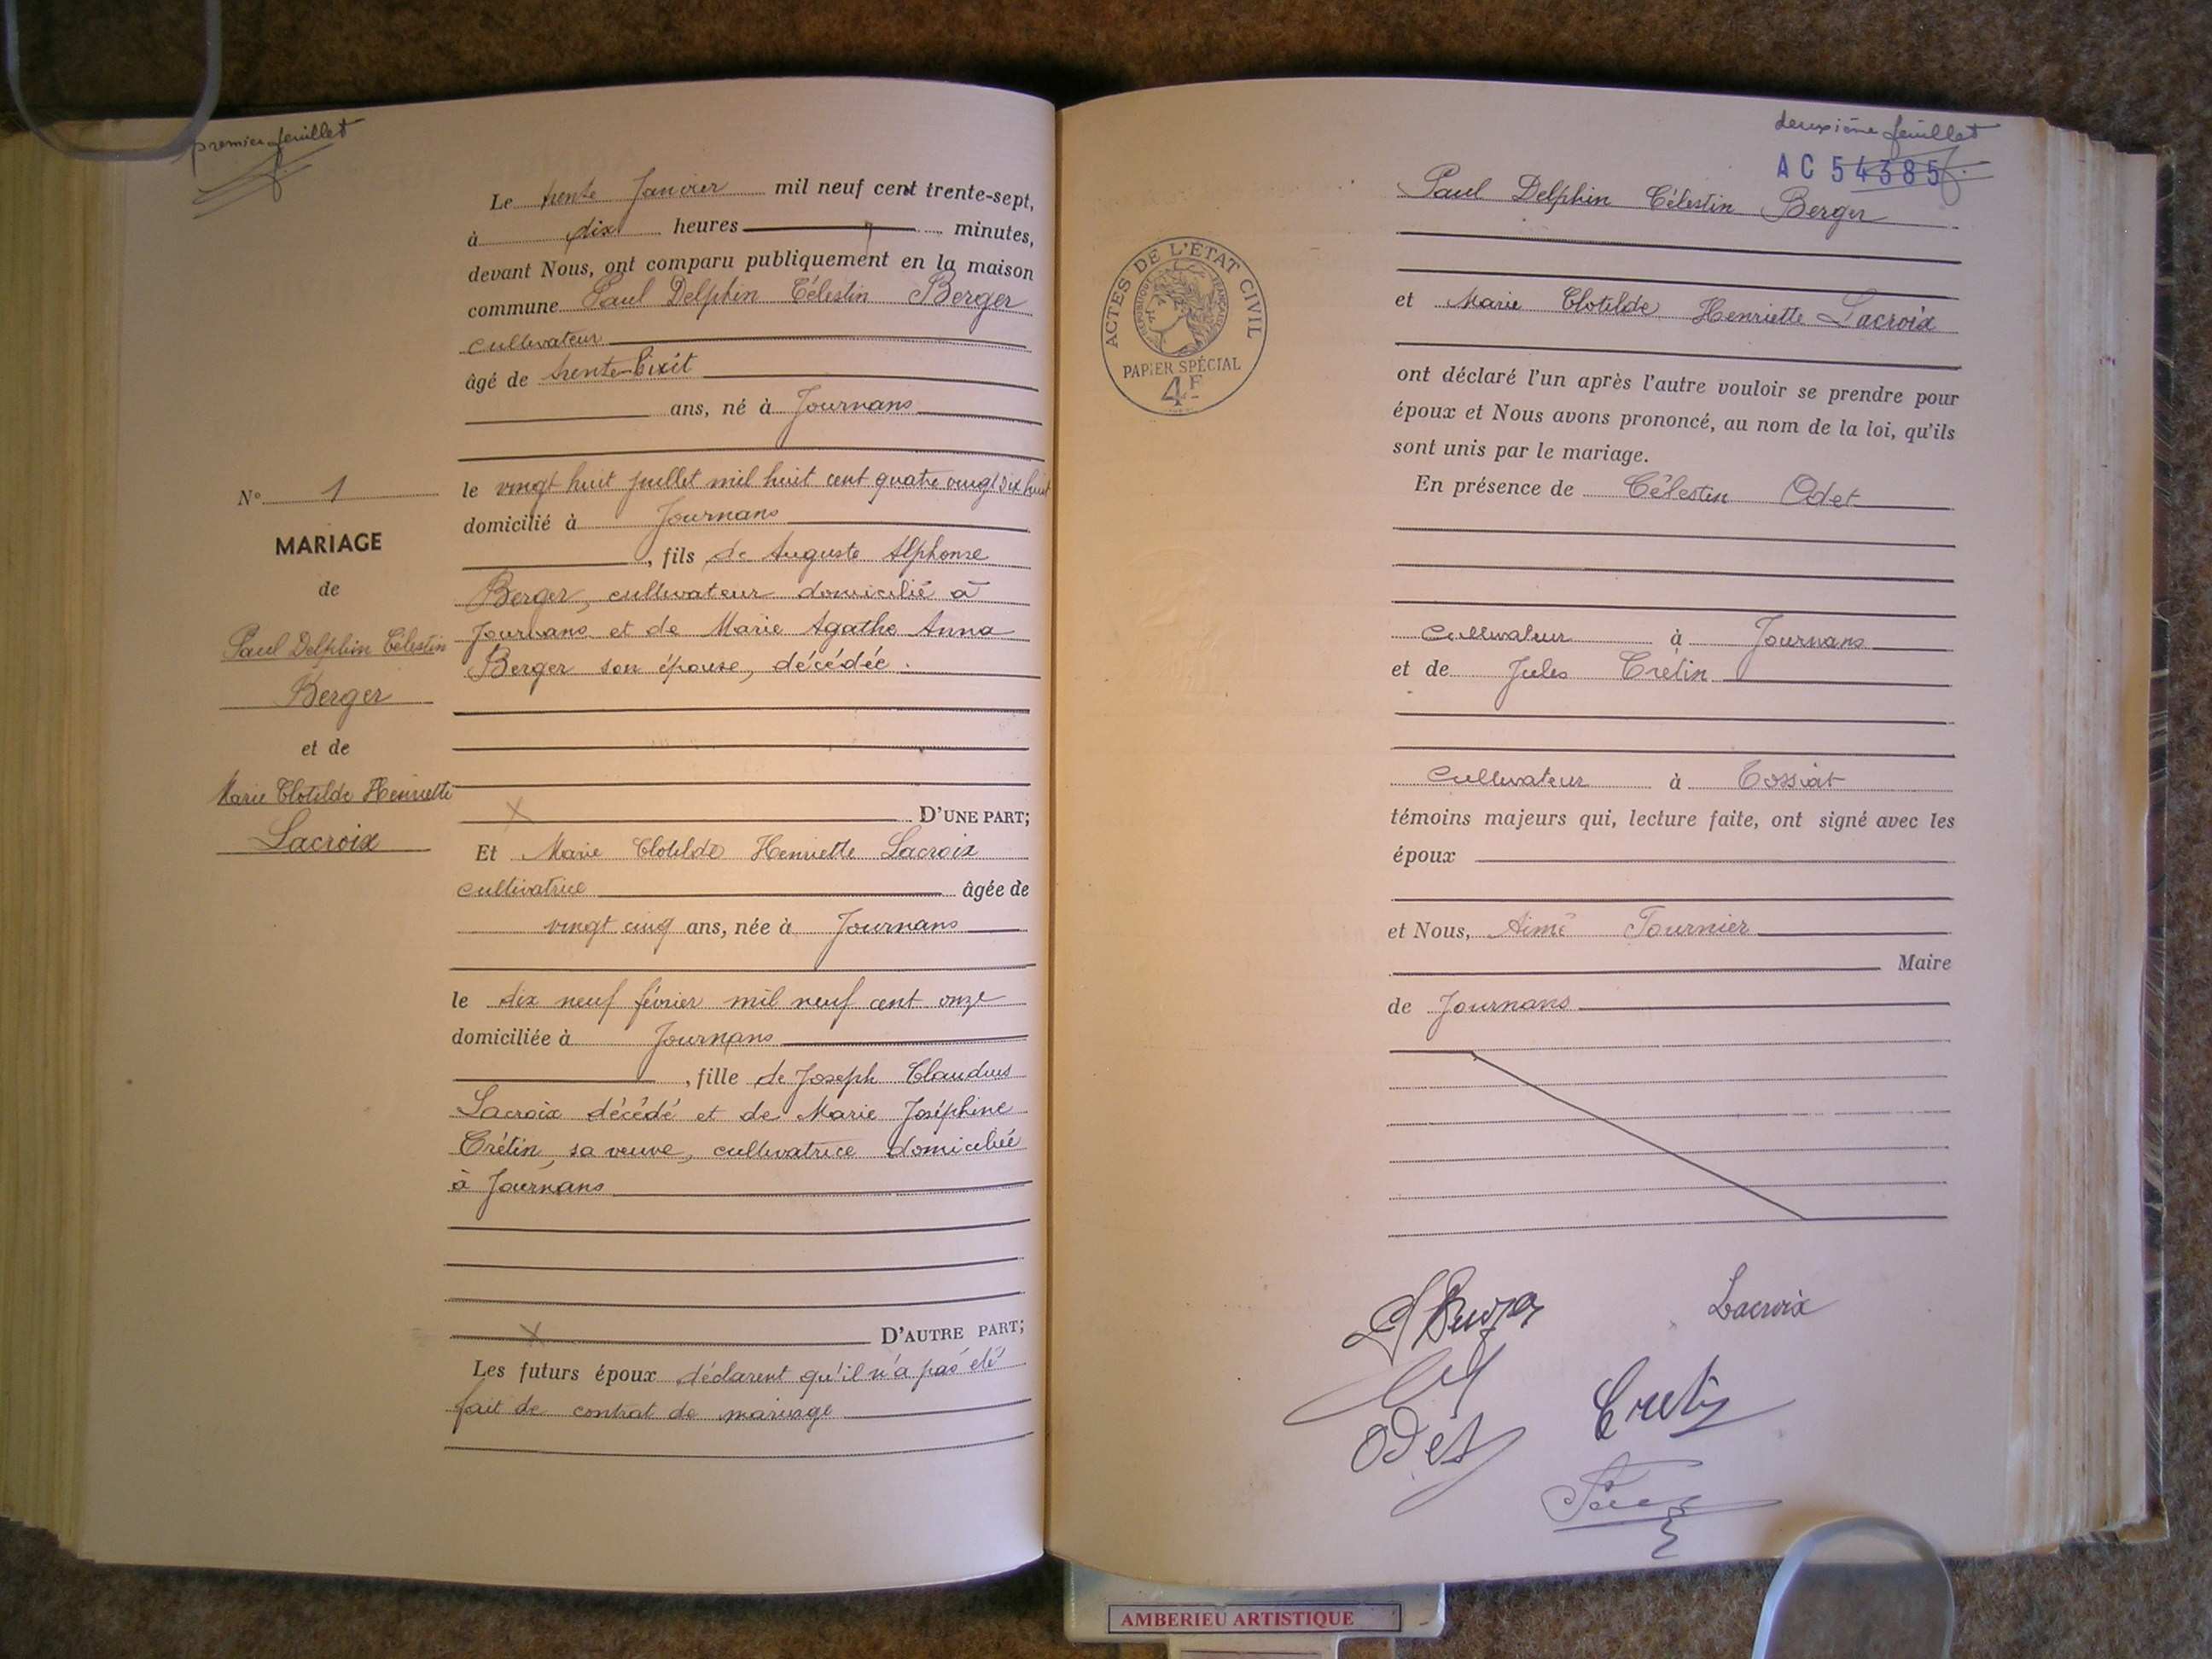 premier feuillet
Le trente Janvier mil neuf cent trente-sept,
à dix heures minutes,
devant Nous, ont comparu publiquement en la maison
commune Paul Delphin Célestin Berger
cultivateur
âgé de trente huit
ans, né à Journans
le vingt huit juillet mil huit cent quatre vingt dix huit
domicilié à Journans
, fils de Auguste Alphonse
Berger, cultivateur domicilié à
Journans et de Marie Agathe Anna
Berger son épouse, décédée.
D'UNE PART;
Et Marie Clotilde Henriette Lacroix
cultivatrice âgée de
vingt cinq ans, née à Journans
le dix neuf février mil neuf cent onze
domiciliée à Journans
, fille de Joseph Claudius
Lacroix décédé et de Marie Joséphine
Crétin, sa veuve, cultivatrice domiciliée
à Journans
D'AUTRE PART;
Les futurs époux déclarent qu'il n'a pas été
fait de contrat de mariage
N° 1
MARIAGE
de
Paul Delphin Célestin
Berger
et de
Marie Clotilde Henriette
Lacroix
deuxième feuillet
AC 54385
ACTES DE L'ETAT CIVIL
REPUBLIQUE FRANÇAISE
PAPIER SPÉCIAL
4F
Paul Delphin Célestin Berger
et Marie Clotilde Henriette Lacroix
ont déclaré l'un après l'autre vouloir se prendre pour
époux et Nous avons prononcé, au nom de la loi, qu'ils
sont unis par le mariage.
En présence de Célestin Odet
Cultivateur à Journans
et de Jules Crétin
Cultivateur à Tossiat
témoins majeurs qui, lecture faite, ont signé avec les
époux
et Nous, Aimé Tournier
Maire
de Journans
Berger
Lacroix
Odet
Cretin
AMBERIEU ARTISTIQUE